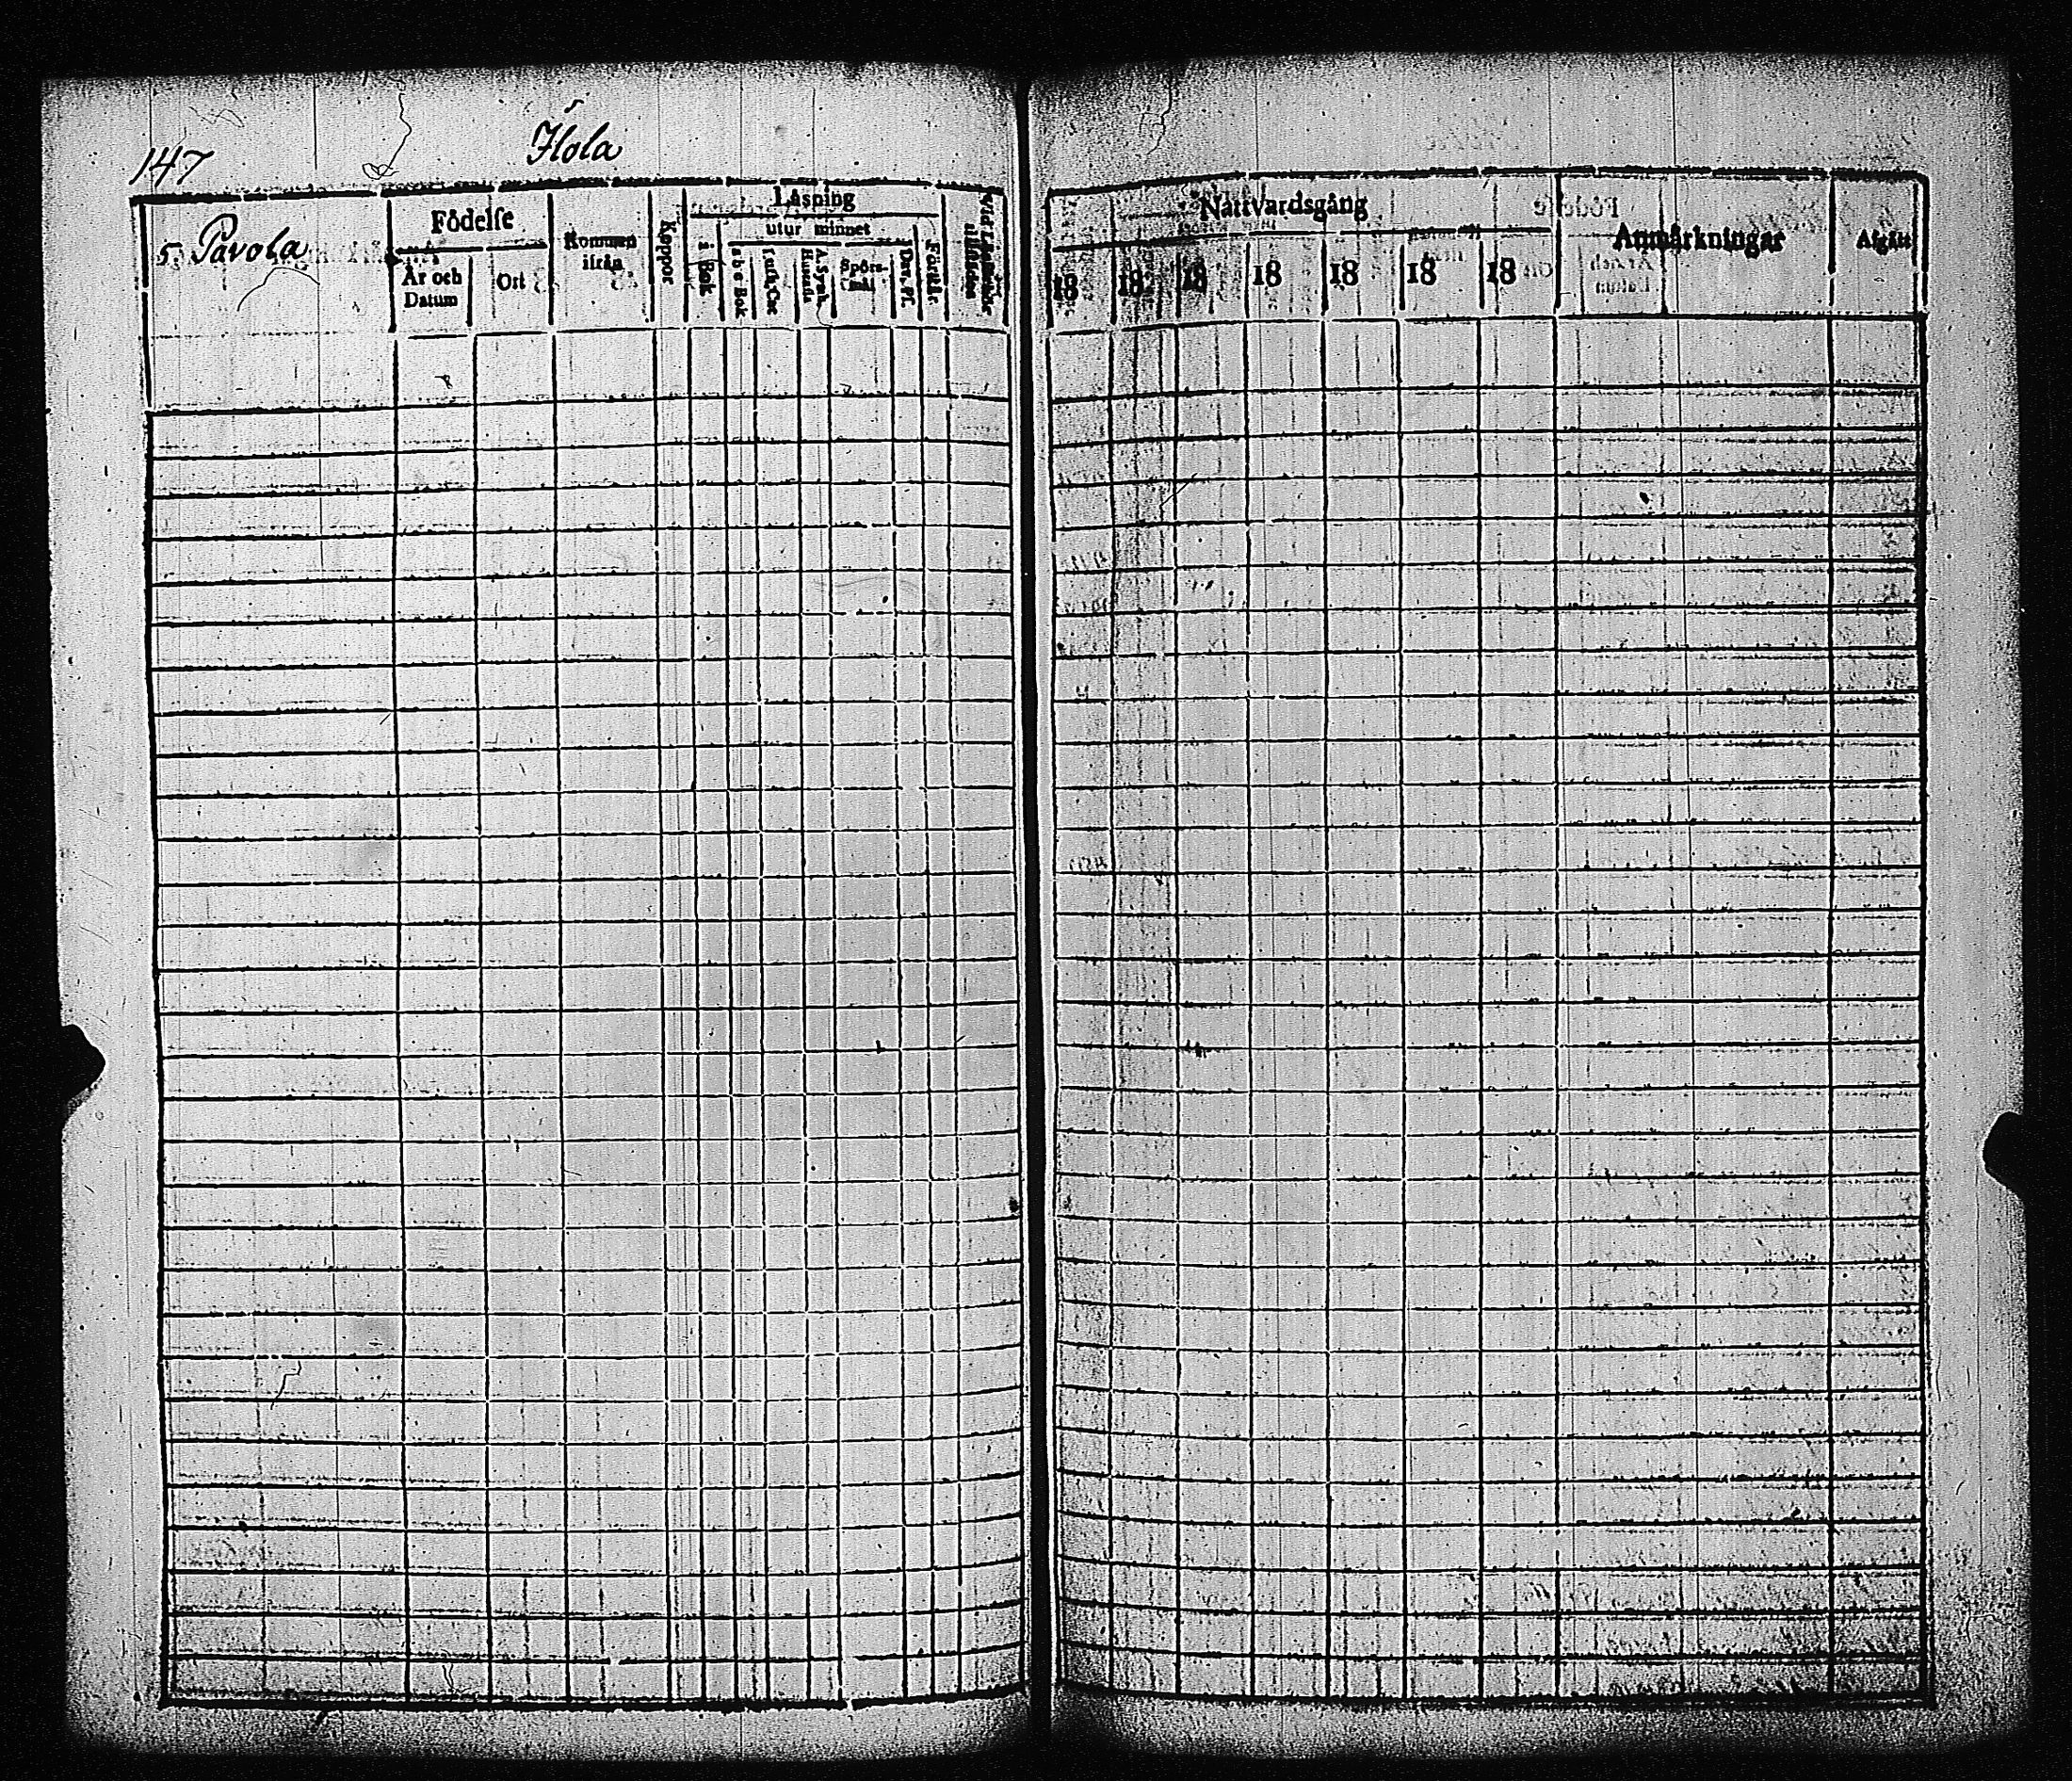 147
Ilola
5. Pavola
Födelse
År och Datum
Ort
Kommen ifrån
Koppor
Läsning
i Bok
utur minnet
a b c Bok
Luth. Cat
A. Symb. Hustafla
Spörsmål
Dav. Ps.
Förstår
Nattvardsgång
18 18 18 18 18 18 18
Anmärkningar
Afgått